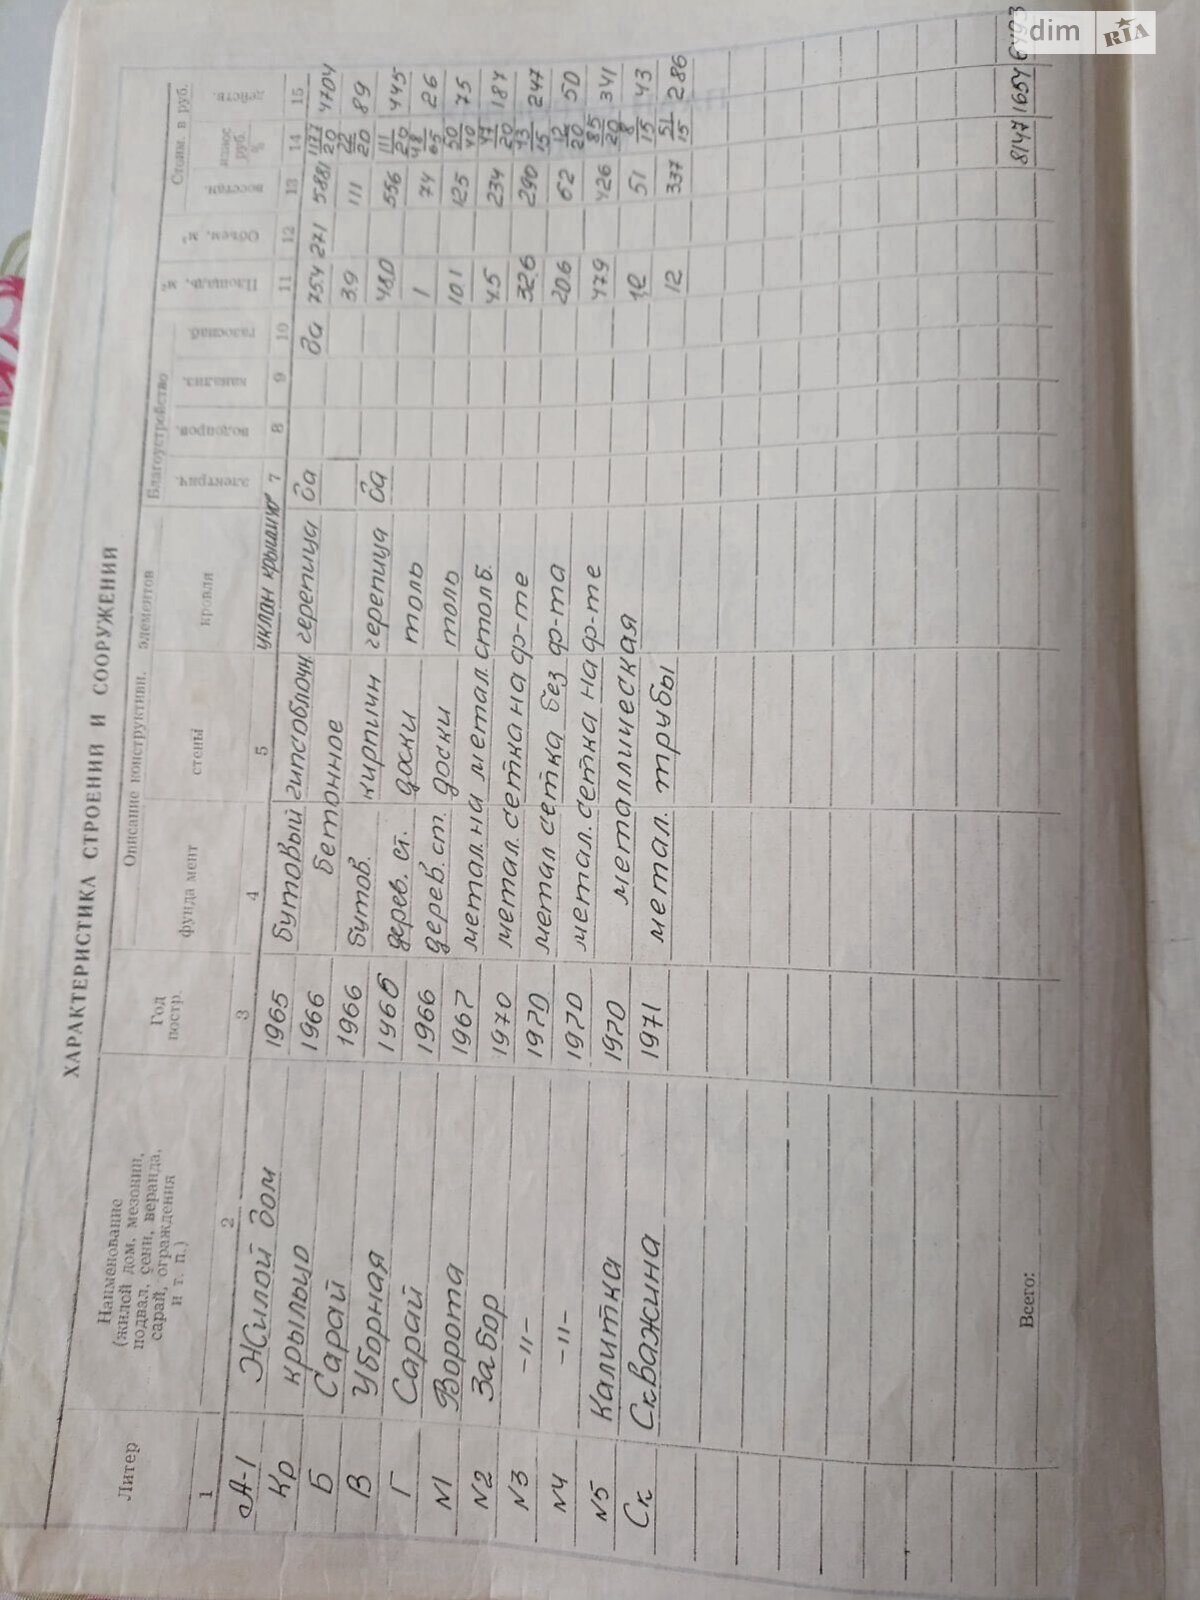 ХАРАКТЕРИСТИКА СТРОЕНИЙ И СООРУЖЕНИЙ
Литер
Наименование
(жилой дом, мезонин,
подвал, сени, веранда,
сарай, ограждения
и т. п.)
Год
постр.
Описание конструктивн. элементов
фундамент
стены
кровля
Благоустройство
электрич.
водопров.
канализ.
газоснаб.
Площадь, м²
Объем, м³
Стоим. в руб.
восстан.
износ
руб.
%
действ.
1 2 3 4 5 уклан крышию 7 8 9 10 11 12 13 14 15
А-1 Жилой дом 1965 Бутовый гипсоблочн черепица да да 75.4 271 5881 1177/20 4704
Кр крыльцо 1966 бетонное 3.9 111 22/20 89
Б Сарай 1966 бутов. кирпичн черепица да 48.0 556 111/20 445
В Уборная 1966 дерев. ст. доски толь 1 74 48/65 26
Г Сарай 1966 дерев. ст. доски толь 10.1 125 50/40 75
N1 Ворота 1967 метал. на метал. столб. 4.5 234 47/20 187
N2 Забор 1970 метал. сетка на ф-те 32.6 290 43/15 247
N3 -"- 1970 метал сетка без ф-та 20.6 62 12/20 50
N4 -"- 1970 метал. сетка на ф-те 47.9 426 85/20 341
N5 Калитка 1970 металлическая 1.2 51 8/15 43
Ск Скважина 1971 метал. трубы 12 337 51/15 286
Всего: 8147 1654 6493
dim RIA